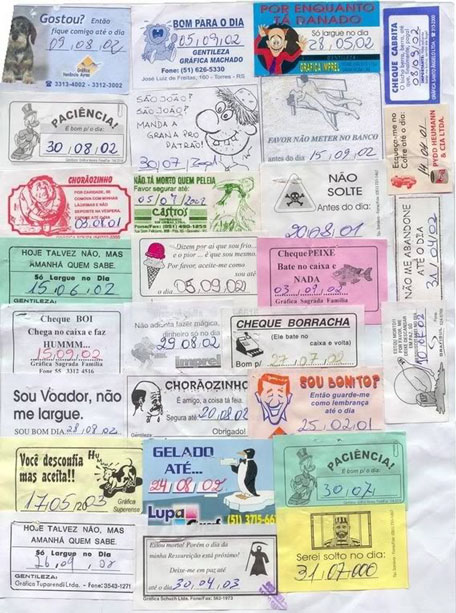 Gostou? Então
fique comigo até o dia
09,08,02
Gráfica
3313-4002 - 3312-3002
BOM PARA O DIA
05,09,02
GENTILEZA
GRÁFICA MACHADO
Fone: (51) 626-5330
José Luiz de Freitas, 160 - Torres - RS
POR ENQUANTO
TÁ DANADO
Só largue no dia
28,05,02
GRÁFICA IMPREL
CHEQUE CABRITA
08,09,02
PACIÊNCIA!
É bom p/ o dia:
30,08,02
SÃO JOÃO?
SÃO JOÃO?
MANDA A
GRANA PRO
PATRÃO!
30/07
FAVOR NÃO METER NO BANCO
antes do dia 15,09,02
Esqueça-me no
Cofre até o dia:
14,04,01
PYDD HEUMANN
& CIA LTDA.
CHORÃOZINHO
POR CARIDADE, SE
COMOVA COM MINHAS
LÁGRIMAS E NÃO
DEPOSITE NA VÉSPERA.
NÃO TÁ MORTO QUEM PELEIA
Favor segurar até:
05/07/2002
CASTROS
NÃO
SOLTE
Antes do dia:
20,08,01
NÃO ME ABANDONE
ATÉ O DIA
31,04,01
HOJE TALVEZ NÃO, MAS
AMANHÃ QUEM SABE.
Só Largue no Dia
15,06,02
GENTILEZA:
Dizem por aí que sou frio...
e o pior ... é que sou mesmo.
Por favor, aceite-me como
sou até
o dia
05,09,02
Cheque PEIXE
Bate no caixa e
NADA
03,09,02
Gráfica Sagrada Família
Cheque BOI
Chega no caixa e faz
HUMMM...
15,09,02
Gráfica Sagrada Família
Fone 55 3312 4516
Não adianta fazer mágica.
29,08,02
Imprel
CHEQUE BORRACHA
(Ele bate no
caixa e volta)
Bom p/ 27,07,02
10,05,02
Sou Voador, não
me largue.
SOU BOM DIA 28,08,02
CHORÃOZINHO
É amigo, a coisa tá feia.
Segura até 20,08,02
Gentileza
Obrigado!
SOU BONITO?
Então guarde-me
como lembrança
até o dia
25,02,01
Você desconfia
mas aceita!!
17,05,2003
Gráfica
Superense
GELADO
ATÉ...
24,08,02
Lupa
Graf
PACIÊNCIA!
É bom p/ o dia:
30,07,
HOJE TALVEZ NÃO, MAS
AMANHÃ QUEM SABE.
Só Largue no Dia
26,09,02
GENTILEZA:
Gráfica Tuparendi Ltda. - Fone: 3543-1271
Estou morto! Porém o dia da
minha Ressureição está próximo!
Deixe-me em paz
até 30,04,03
Gráfica Schuch Ltda. Fone/Fax: 562-1973
Serei solto no dia:
31,07,000